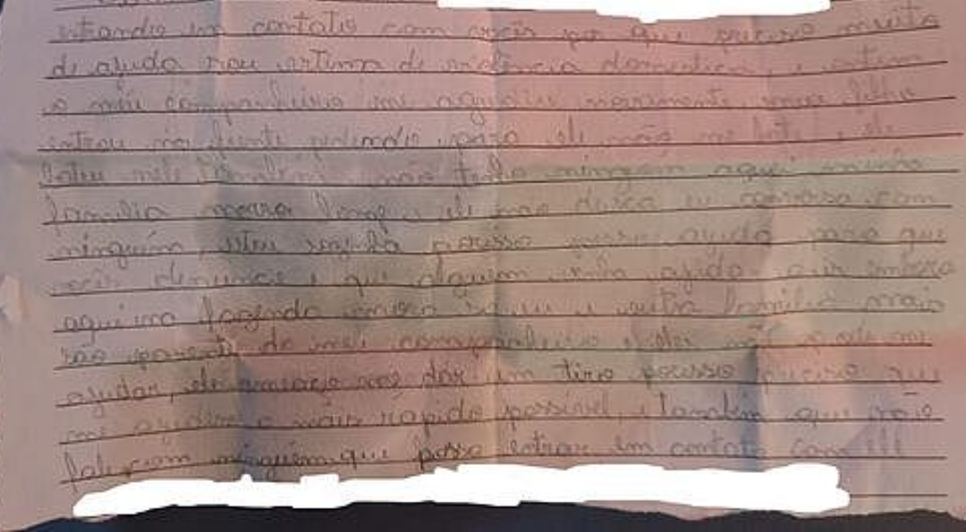 entrando em contato com vocês por que preciso muito
de ajuda sou vitima de violência domestica, e ontem
o meu companheiro me agrediu novamente meu filho
entrou na frente pedindo para ele não me bate e ele
bateu nele também não tenho ningém aqui minha
família mora longe e ele não deixa eu conversa com
ninguém, estou porisso ajuda para que
vocês denuncie e que alguem venha ajuda
aqui na fazenda mora e outra familia mais
são parente do meu companheiro eles não pode me
ajudar, ele ameaça me dár um tiro porisso preciso que
me ajudem o mais rapido possivel, e também que não
ninguém que possa entrar em contato com ele